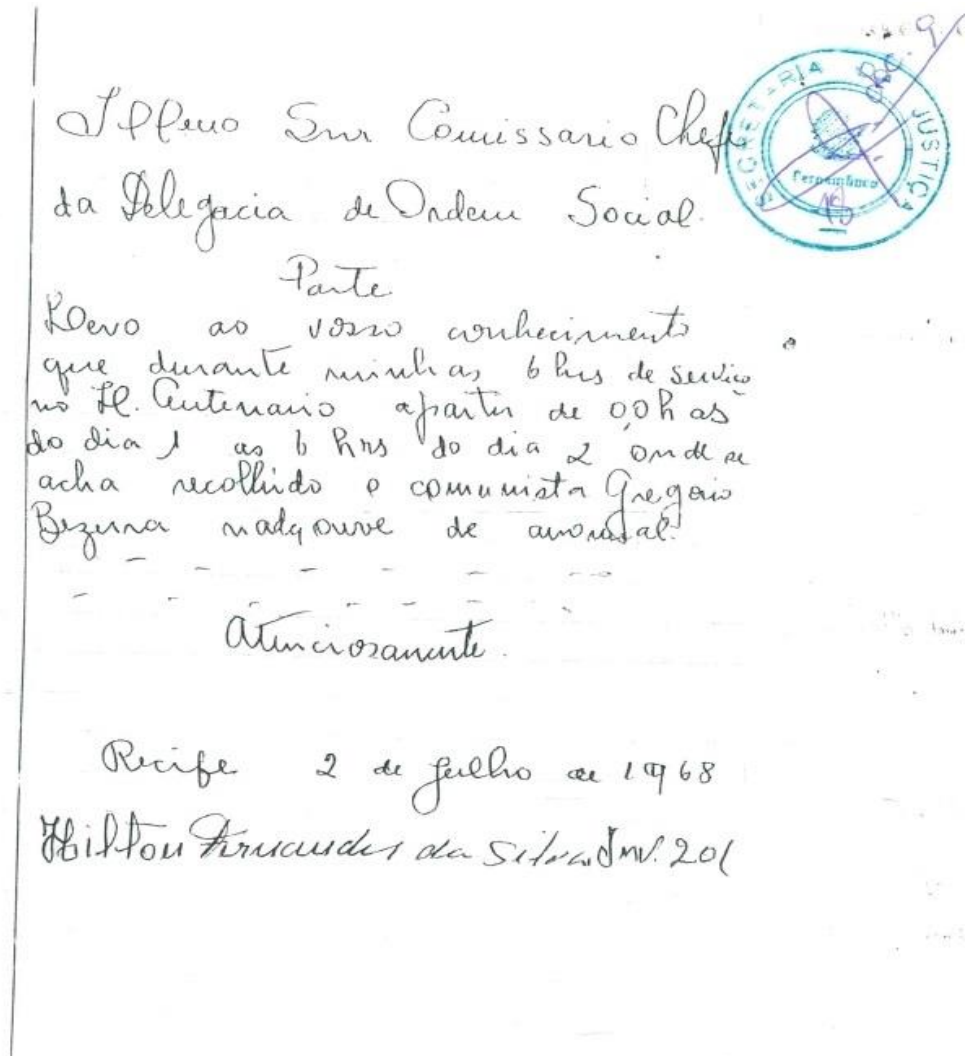 Illmo Snr Comissario Chefe
da Delegacia de Ordem Social.
SECRETARIA DA JUSTIÇA
Pernambuco
Parte
Levo ao vosso conhecimento
que durante minhas 6 hrs de serviço
no H. Centenario apartir de 00h as
do dia 1 as 6 hrs do dia 2 onde se
acha recolhido o comunista Gregorio
Bezerra nada ouve de anormal.
Atenciosamente.
Recife 2 de Julho de 1968
Hilton Fernandes da Silva Inv. 201